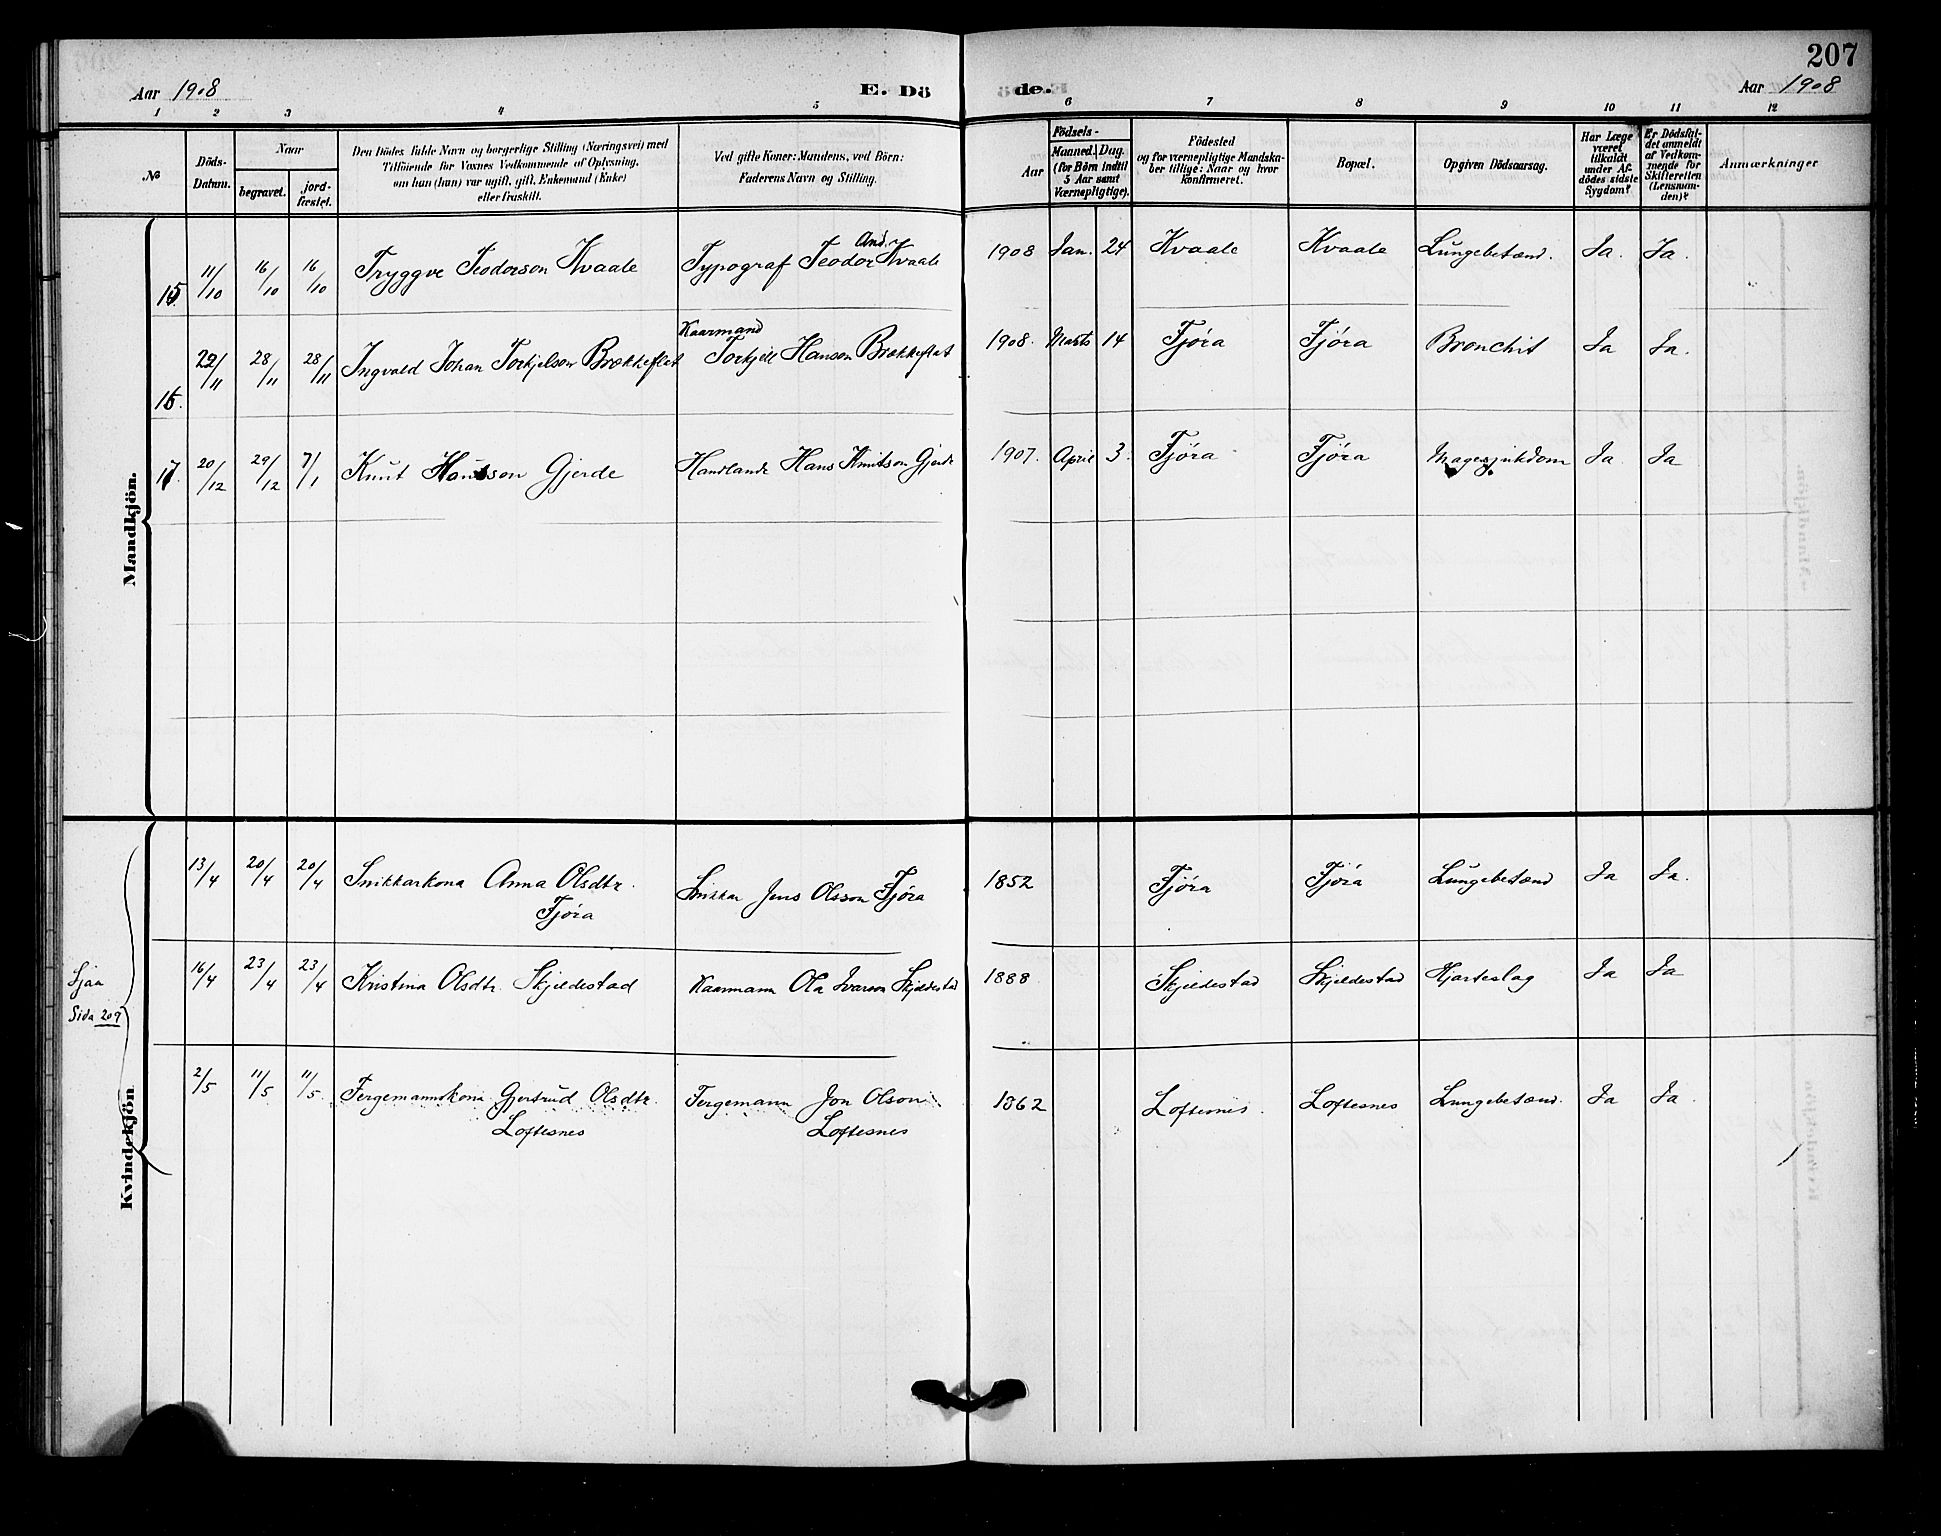 207
Aar 1908 E. Dö de. Aar 1908
1 2 3 4 5 6 7 8 9 10 11 12
№ Döds-Datum. Naar begravet. jord-fæstet. Den Dödes fulde Navn og borgerlige Stilling (Næringsvei) med Tilföiende for Voxnes Vedkommende af Oplysning, om han (hun) var ugift, gift, Enkemand (Enke) eller fraskilt. Ved gifte Koner: Mandens, ved Börn: Faderens Navn og Stilling. Aar Födsels- Maaned. Dag. (for Börn indtil 5 Aar samt Værnepligtige). Födested og for værnepligtige Mandska-ber tillige: Naar og hvor konfirmeret. Bopæl. Opgiven Dödsaarsag. Har Læge været tilkaldt under Af-dödes sidste Sygdom? Er Dödsfal-det anmeldt af Vedkom-mende for Skifteretten (Lensman-den)? Anmærkninger
Mandkjön.
15. 11/10 16/10 16/10 Tryggve Teodorson Kvaale Typograf Teodor And. Kvaale 1908 Jan. 24 Kvaale Kvaale Lungebetænd. Ja. Ja.
16. 22/11 28/11 28/11 Ingvald Johan Torkjelson Brækkeflat Kaarmand Torkjell Hanson Brækkeflat 1908. Marts 14 Fjøra Fjøra Bronchit Ja Ja.
17. 20/12 29/12 7/1 Knut Hansson Gjerde Handlande Hans Knutson Gjerde 1907. April 3. Fjøra Fjøra Magesjukdom Ja Ja
Kvindekjön
13/4 20/4 20/4 Snikkarkona Anna Olsdtr. Fjøra Snikkar Jens Olsson Fjøra 1852 Fjøra Fjøra Lungebetænd Ja Ja.
Sjaa Sida 209
16/4 23/4 23/4 Kristina Olsdtr. Skjeldestad Kaarmann Ola Ivarson Skjeldestad 1888 Skjeldestad Skjeldestad Hjarteslag Ja Ja
2/5 11/5 11/5. Fergemannskona Gjertrud Olsdtr. Loftesnes Fergemann Jon Olson Loftesnes 1862 Loftesnes. Loftesnes Lungebetænd. Ja Ja.